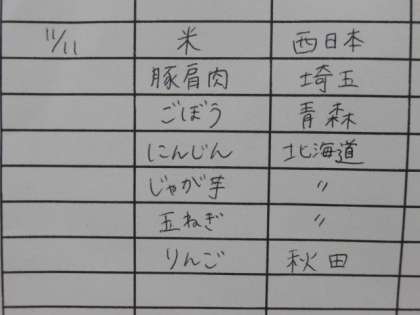 11/11 米 西日本
豚肩肉 埼玉
ごぼう 青森
にんじん 北海道
じゃが芋 〃
玉ねぎ 〃
りんご 秋田